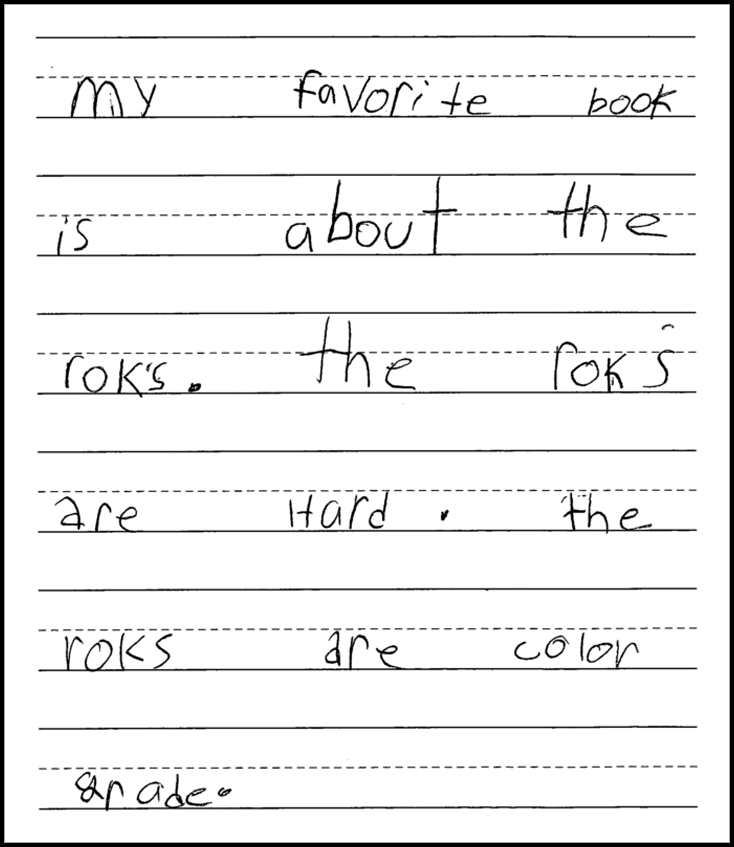 My favorite book
is about the
rok's. the rok's
are Hard. the
roks are color
grade.